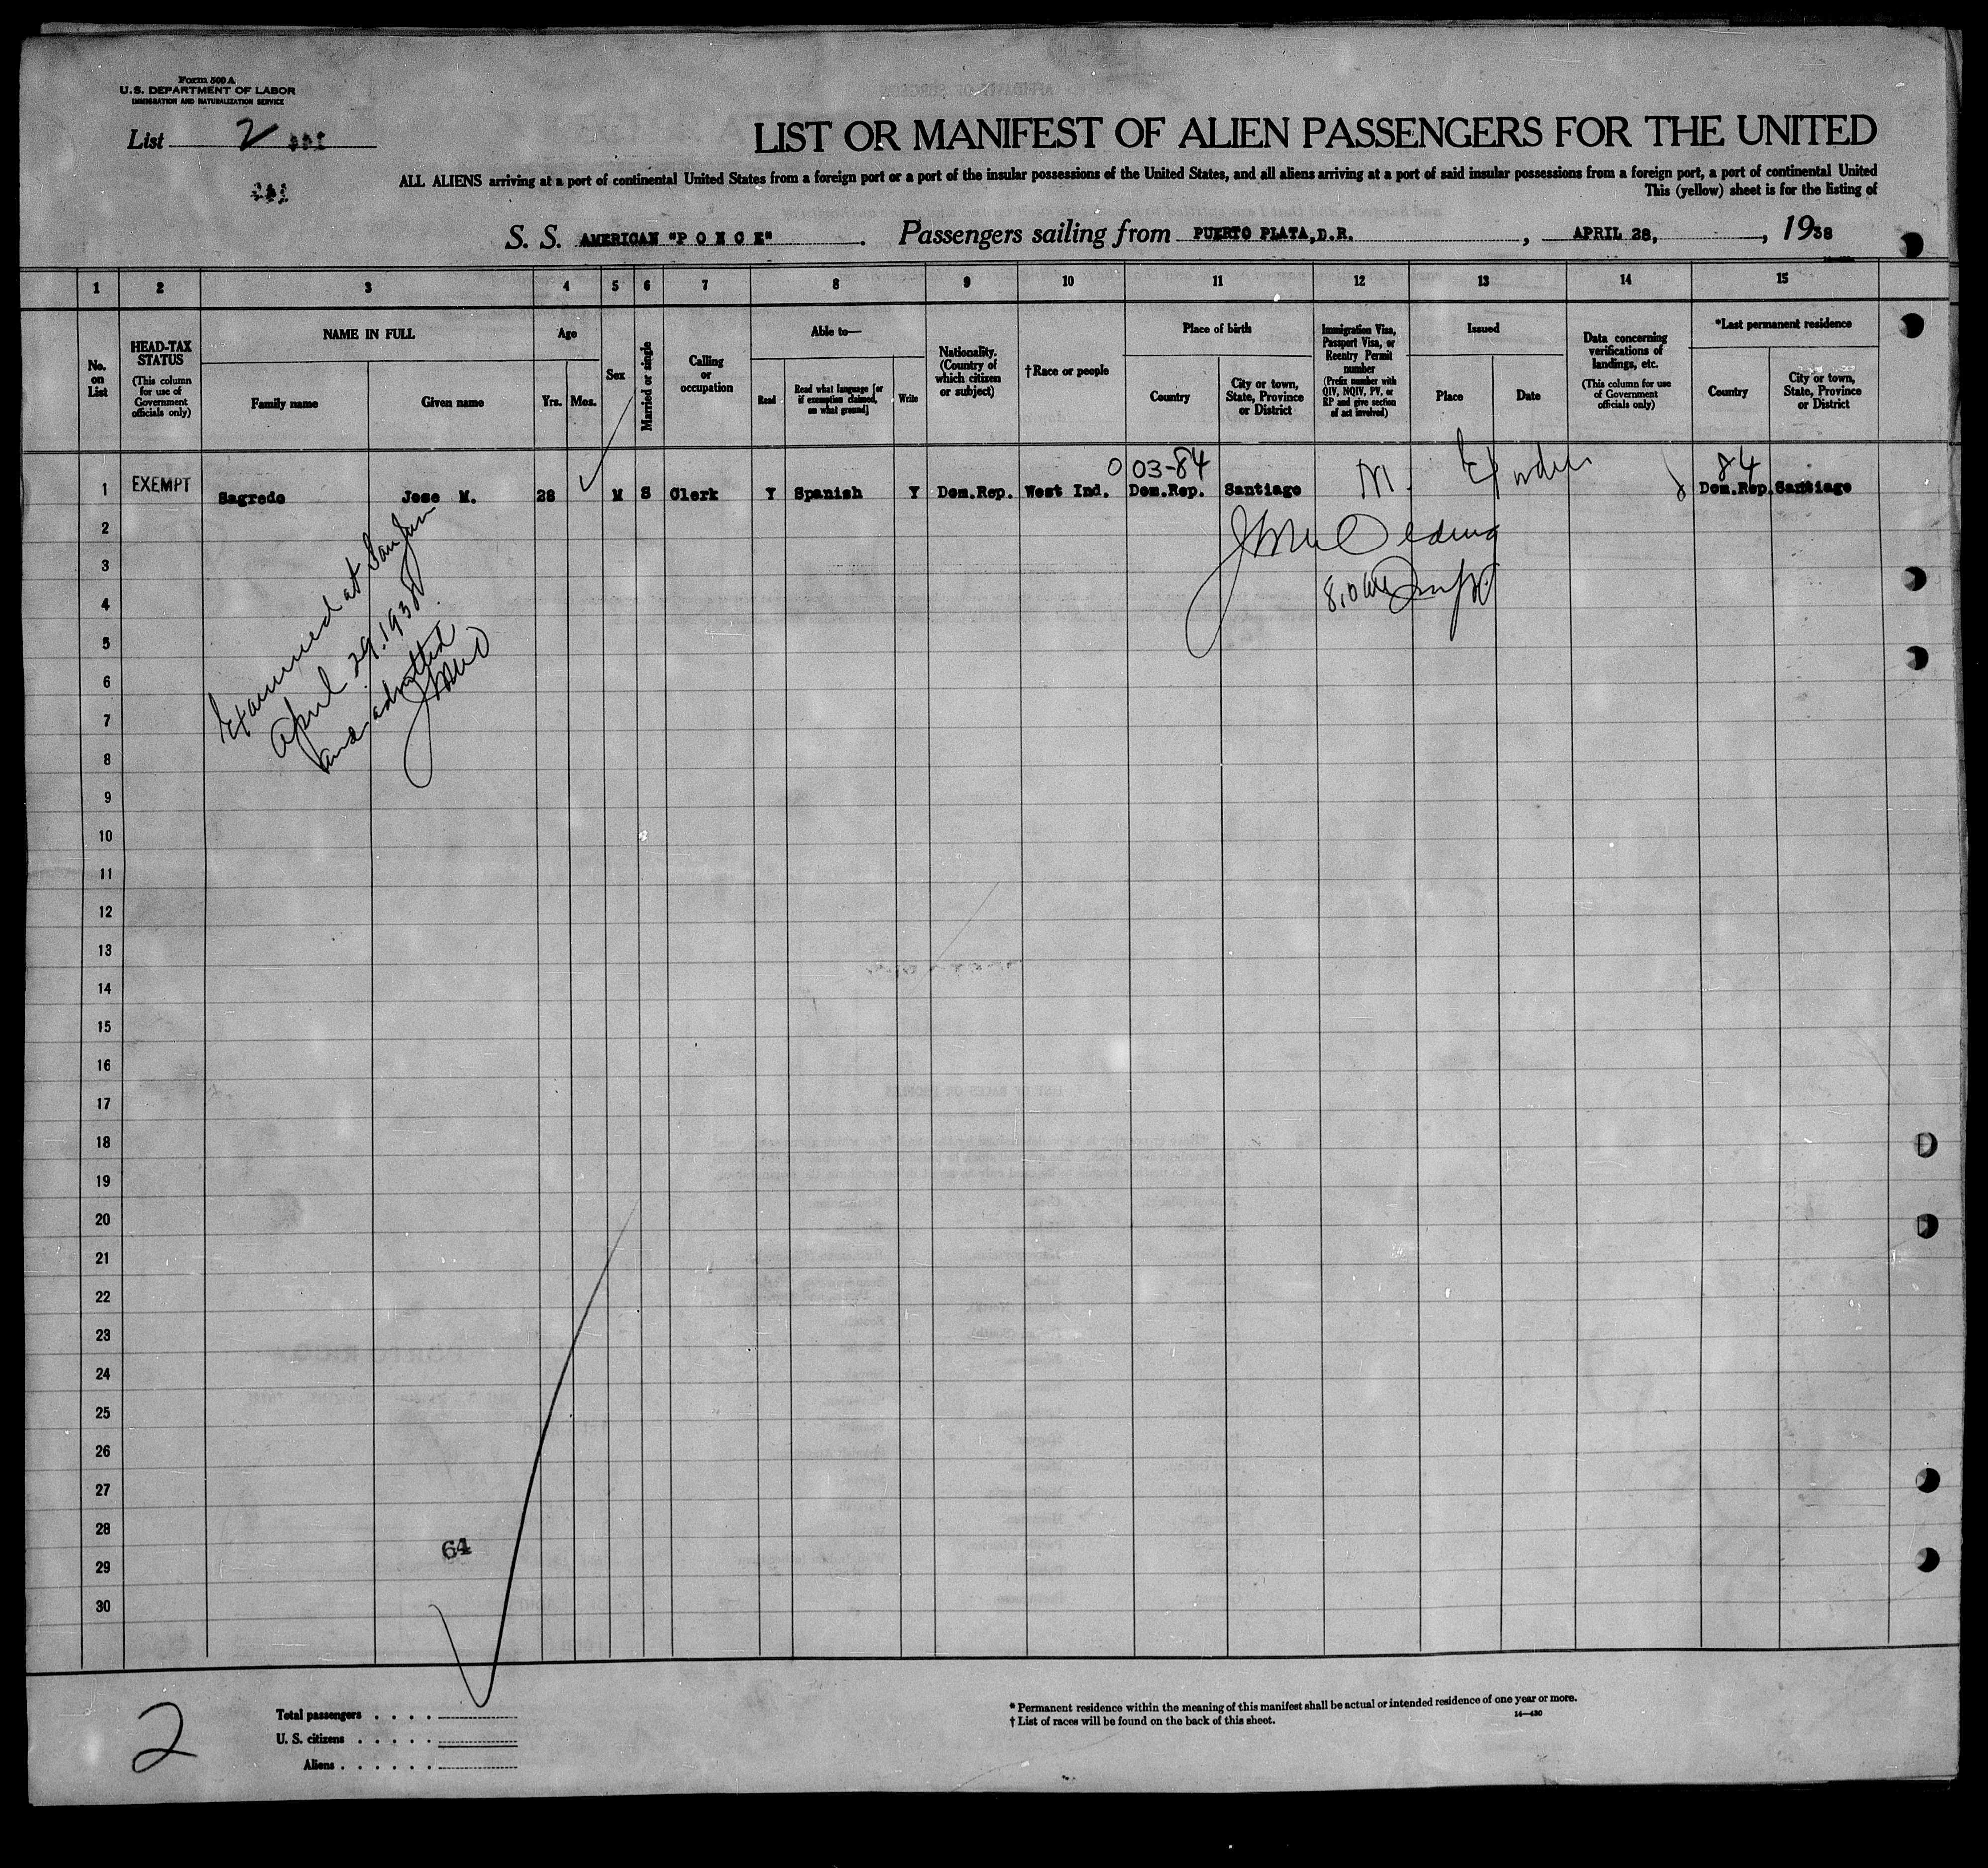 Form 500 A
U.S. DEPARTMENT OF LABOR
IMMIGRATION AND NATURALIZATION SERVICE
List 2
LIST OR MANIFEST OF ALIEN PASSENGERS FOR THE UNITED
ALL ALIENS arriving at a port of continental United States from a foreign port or a port of the insular possessions of the United States, and all aliens arriving at a port of said insular possessions from a foreign port, a port of continental United
This (yellow) sheet is for the listing of
S. S. AMERICAN "P O N C E". Passengers sailing from PUERTO PLATA, D.R., APRIL 28, , 1938
1 2 3 4 5 6 7 8 9 10 11 12 13 14 15
No. on List
HEAD-TAX STATUS (This column for use of Government officials only)
NAME IN FULL
Family name
Given name
Age
Yrs.
Mos.
Sex
Married or single
Calling or occupation
Able to—
Read
Read what language [or if exemption claimed, on what ground]
Write
Nationality. (Country of which citizen or subject)
†Race or people
Place of birth
Country
City or town, State, Province or District
Immigration Visa, Passport Visa, or Reentry Permit number (Prefix number with QIV, NQIV, PV, or RP and give section of act involved)
Issued
Place
Date
Data concerning verifications of landings, etc. (This column for use of Government officials only)
*Last permanent residence
Country
City or town, State, Province or District
003-84
84
1 EXEMPT Sagredo Jose M. 28 M S Clerk Y Spanish Y Dom.Rep. West Ind. Dom.Rep. Santiago M. Dom.Rep. Santiago
Examined at San Juan
April 29. 1938.
and admitted
JMWO
2
3
4
5
6
7
8
9
10
11
12
13
14
15
16
17
18
19
20
21
22
23
24
25
26
27
28
29
30
64
2
Total passengers . . . .
U. S. citizens . . . . .
Aliens . . . . . .
* Permanent residence within the meaning of this manifest shall be actual or intended residence of one year or more.
† List of races will be found on the back of this sheet.
14—430